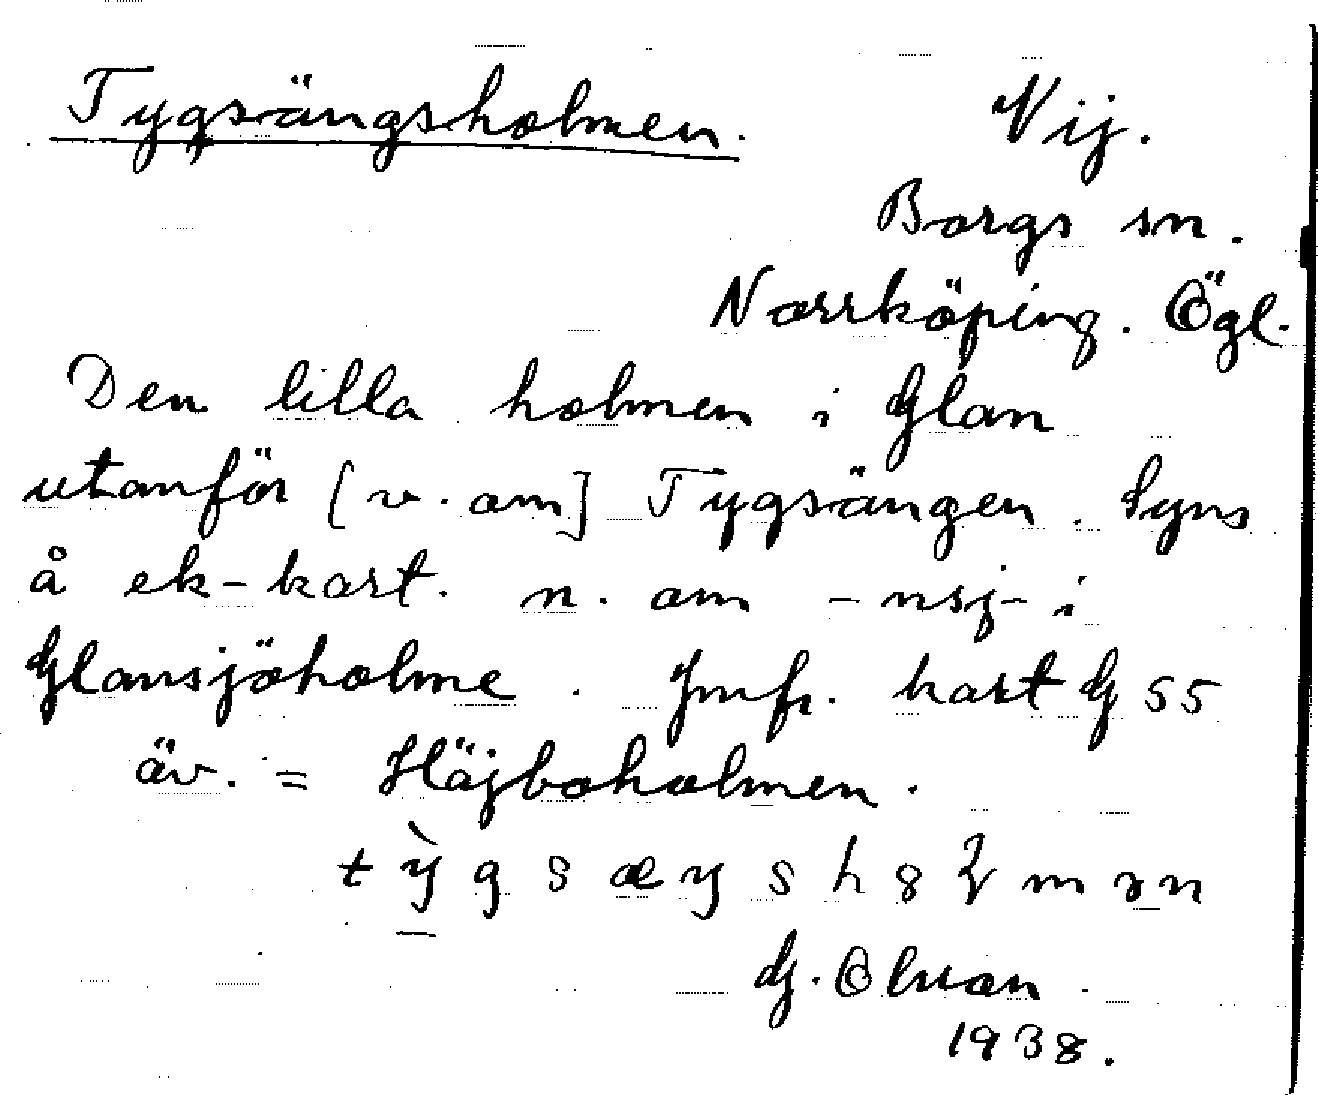 Tygsängsholmen. Vij.
Borgs sn.
Norrköping. Ögl.
Den lilla holmen i Glan
utanför [v. om] Tygsängen. Syns
å ek-kart. n. om -nsj- i
Glansjöholme. Jmfr. kart G 55
äv. = Häjboholmen.
1938.